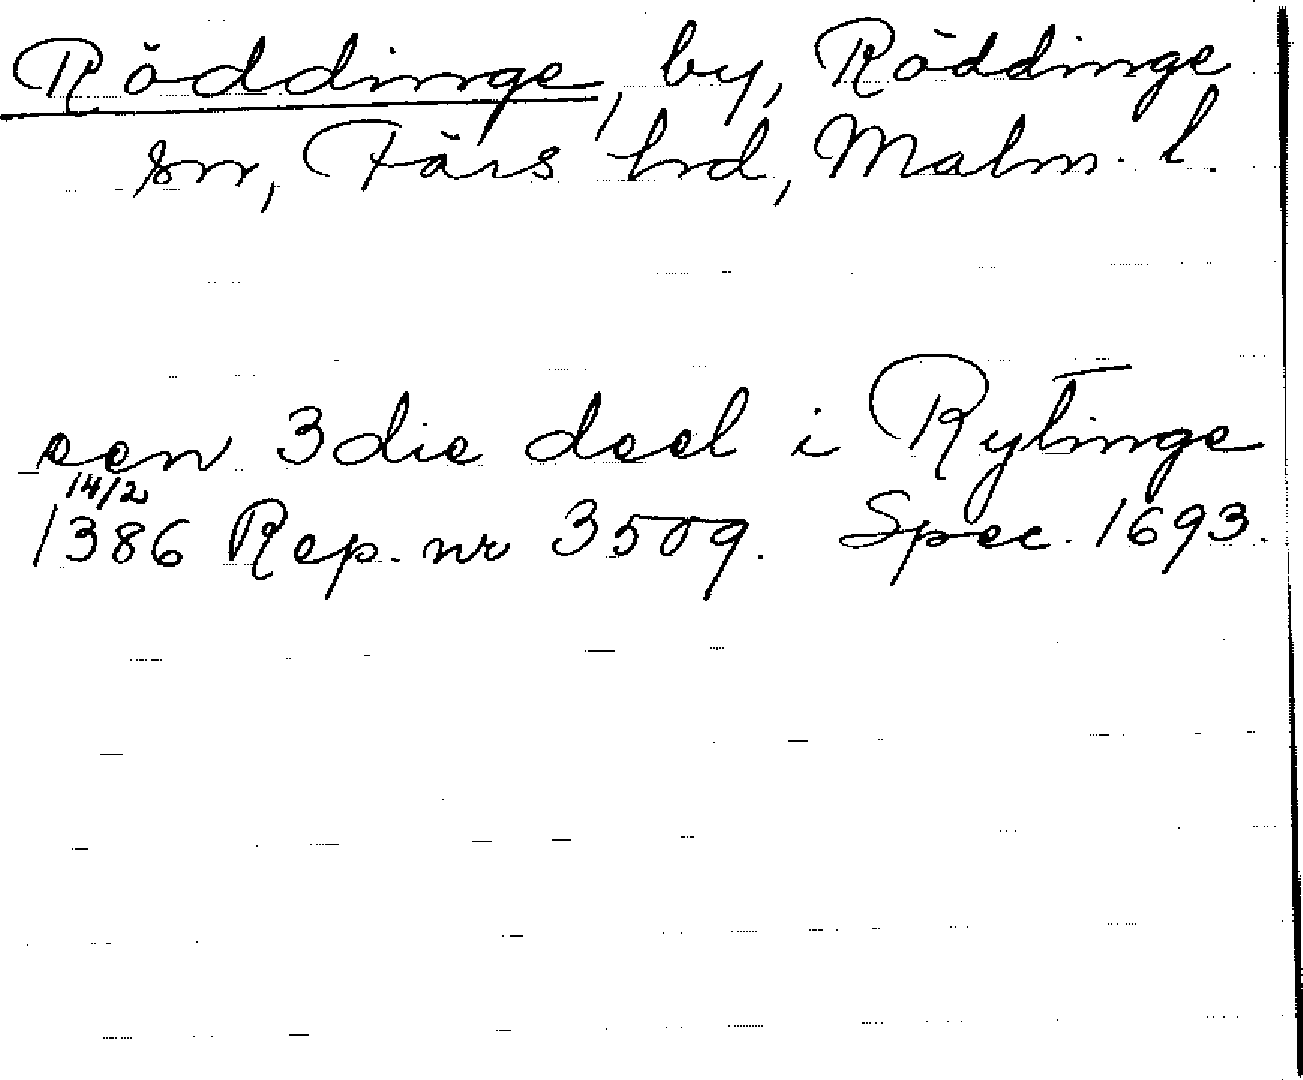 Röddinge, by, Röddinge
sn, Färs hd, Malm. l.
een 3die deel i Rytinge
14/2
1386 Rep. nr 3509. Spec. 1693.